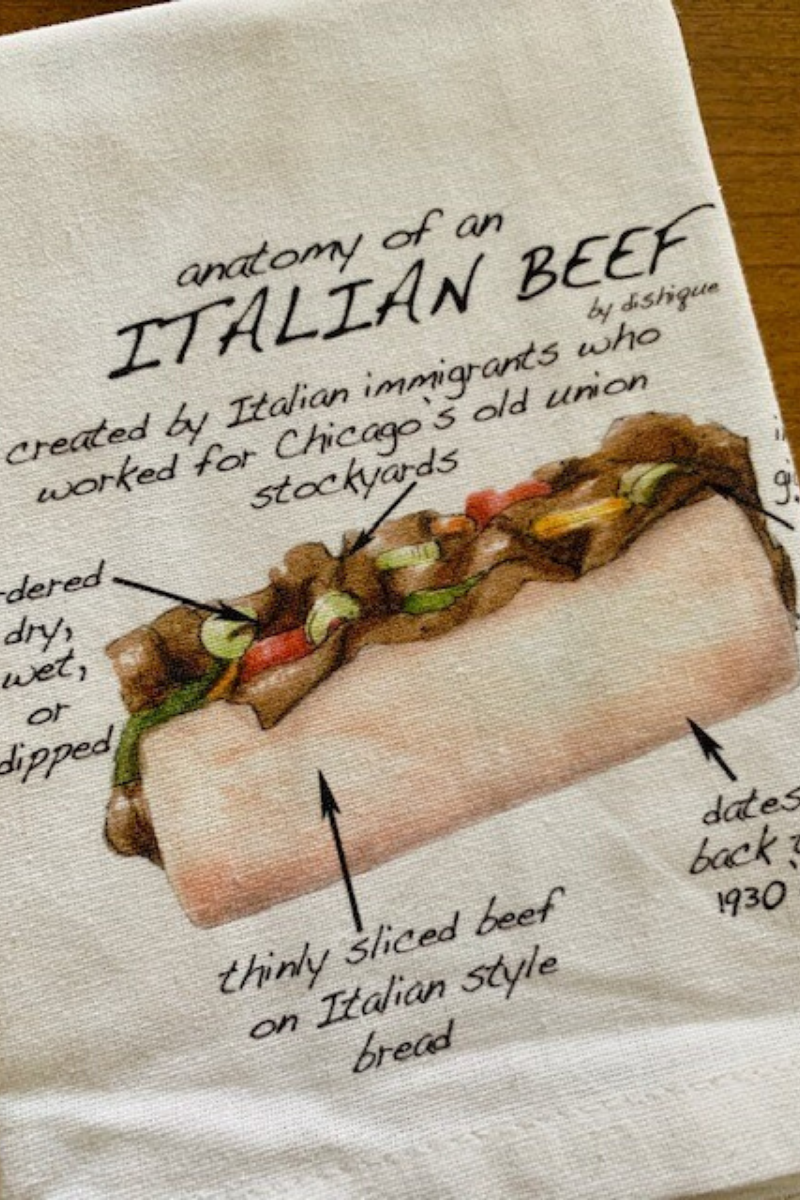 anatomy of an
ITALIAN BEEF
by dishique
created by Italian immigrants who
worked for Chicago's old union
stockyards
rdered
dry,
wet,
or
dipped
dates
back
1930'
thinly sliced beef
on Italian style
bread